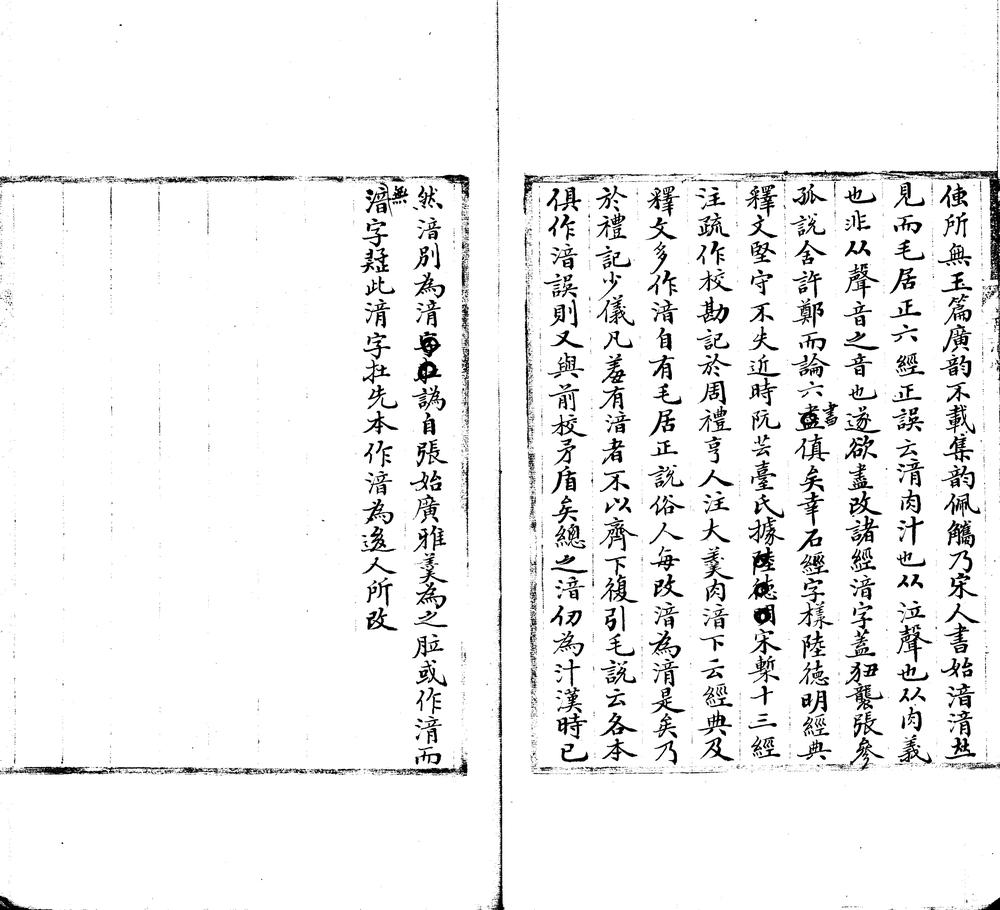 使所無玉篇廣韵不載集韵佩觿乃宋人書始湆湇並
見而毛居正六經正誤云湇肉汁也从泣聲也从肉義
也非从聲音之音也遂欲盡改諸經湆字蓋狃襲張參
孤說舍許鄭而論六書傎矣幸石經字樣陸德明經典
釋文堅守不失近時阮芸臺氏據宋槧十三經
注疏作校勘記於周禮亨人注大羹肉湆下云經典及
釋文多作湆自有毛居正說俗人每改湆為湇是矣乃
於禮記少儀凡羞有湆者不以齊下復引毛說云各本
俱作湆誤則又與前校矛盾矣總之湆仞為汁漢時已
然湆別為湇譌自張始廣雅羹為之䏠或作湇而
無湆字疑此湇字扗先本作湆為後人所改